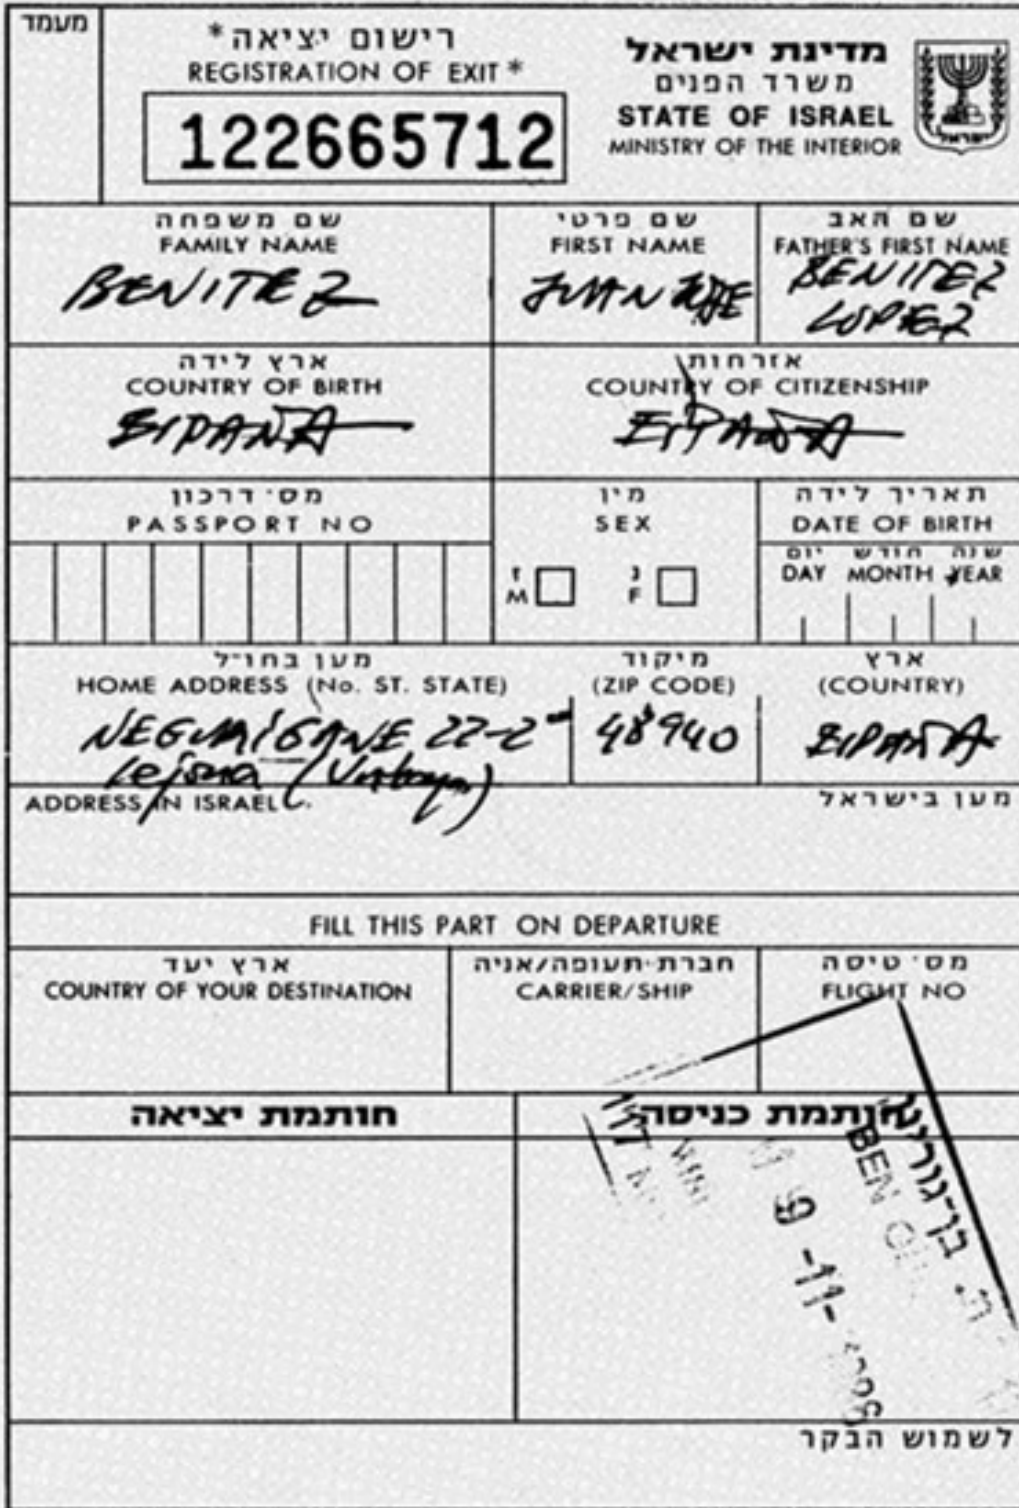 מעמד
רישום יציאה*
REGISTRATION OF EXIT *
122665712
מדינת ישראל
משרד הפנים
STATE OF ISRAEL
MINISTRY OF THE INTERIOR
ישראל
שם משפחה
FAMILY NAME
BENITEZ
שם פרטי
FIRST NAME
JUAN JOSE
שם האב
FATHER'S FIRST NAME
BENITEZ
LOPEZ
ארץ לידה
COUNTRY OF BIRTH
ESPAÑA
אזרחות
COUNTRY OF CITIZENSHIP
ESPAÑA
מס' דרכון
PASSPORT NO
מין
SEX
ז
M
נ
F
תאריך לידה
DATE OF BIRTH
שנה חודש יום
DAY MONTH YEAR
מען בחו"ל
HOME ADDRESS (No. ST. STATE)
22-2
Lejona
מיקוד
(ZIP CODE)
48940
ארץ
(COUNTRY)
ESPAÑA
ADDRESS IN ISRAEL
מען בישראל
FILL THIS PART ON DEPARTURE
ארץ יעד
COUNTRY OF YOUR DESTINATION
חברת-תעופה/אניה
CARRIER/SHIP
מס' טיסה
FLIGHT NO
חותמת יציאה
חותמת כניסה
בן-גוריון
BEN
-11-
לשמוש הבקר